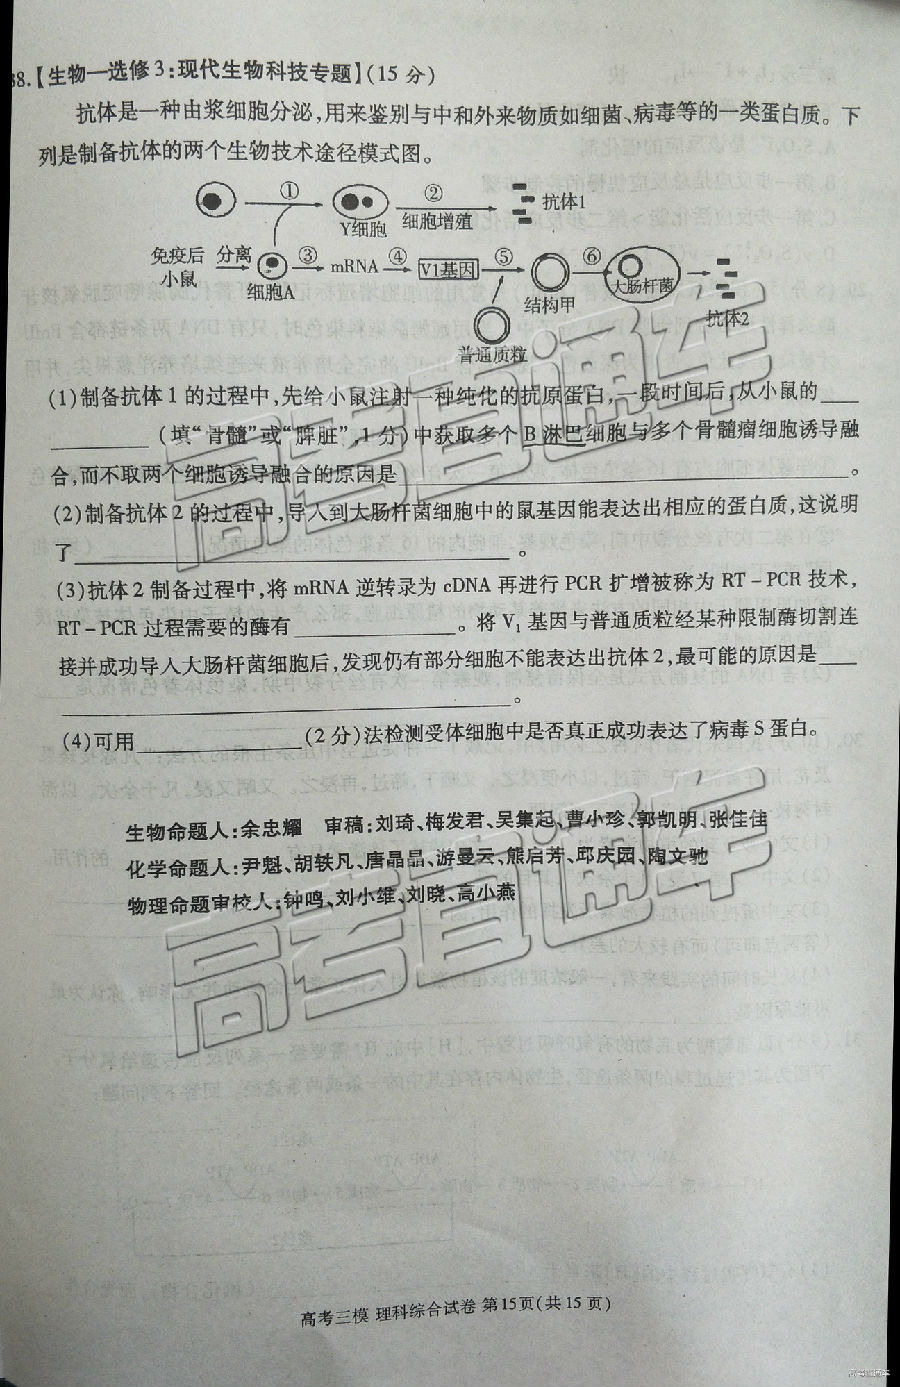 38.【生物—选修3:现代生物科技专题】(15分)
抗体是一种由浆细胞分泌,用来鉴别与中和外来物质如细菌、病毒等的一类蛋白质。下
列是制备抗体的两个生物技术途径模式图。
① ② 抗体1
Y细胞 细胞增殖
免疫后 分离 ③ mRNA ④ V1基因 ⑤ ⑥ 大肠杆菌
小鼠 细胞A 结构甲 抗体2
普通质粒
(1)制备抗体1的过程中,先给小鼠注射一种纯化的抗原蛋白,一段时间后,从小鼠的____
________(填“骨髓”或“脾脏”,1分)中获取多个B淋巴细胞与多个骨髓瘤细胞诱导融
合,而不取两个细胞诱导融合的原因是________________。
(2)制备抗体2的过程中,导入到大肠杆菌细胞中的鼠基因能表达出相应的蛋白质,这说明
了________________。
(3)抗体2制备过程中,将mRNA逆转录为cDNA再进行PCR扩增被称为RT-PCR技术,
RT-PCR过程需要的酶有____________。将V₁基因与普通质粒经某种限制酶切割连
接并成功导入大肠杆菌细胞后,发现仍有部分细胞不能表达出抗体2,最可能的原因是____
________________。
(4)可用____________(2分)法检测受体细胞中是否真正成功表达了病毒S蛋白。
生物命题人:余忠耀 审稿:刘琦、梅发君、吴集起、曹小珍、郭凯明、张佳佳
化学命题人:尹魁、胡轶凡、唐晶晶、游曼云、熊启芳、邱庆园、陶文驰
物理命题审校人:钟鸣、刘小雄、刘晓、高小燕
高考直通车
高考直通车
高考三模 理科综合试卷 第15页(共15页)
高考直通车